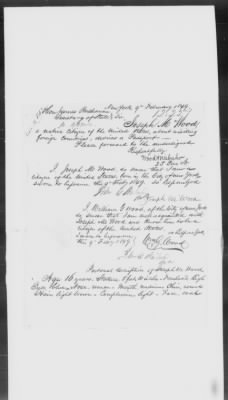 New York 9th February 1849.
Hon James Buchanan
Secretary of State. Sir
Joseph M. Wood
a native Citizen of the United States, about visiting
foreign countries, desires a Passport.
Please forward to the undersigned
Respectfully
I Joseph M. Wood, do swear that I am a
Citizen of the United States, born in the City of New York
Sworn to before me 9th Feby 1849.
Joseph M. Wood
I William E Wood, of the City of New York
do swear that I am acquainted with
Joseph M Wood and know him to be a
Citizen of the United States
Sworn to before me
this 9th Feby 1849
Personal description of Joseph M. Wood
Age 16 years. Stature 5 feet Inches. Forehead high
Eyes blue. Nose Mouth medium Chin round
Hair light brown. Complexion light. Face oval